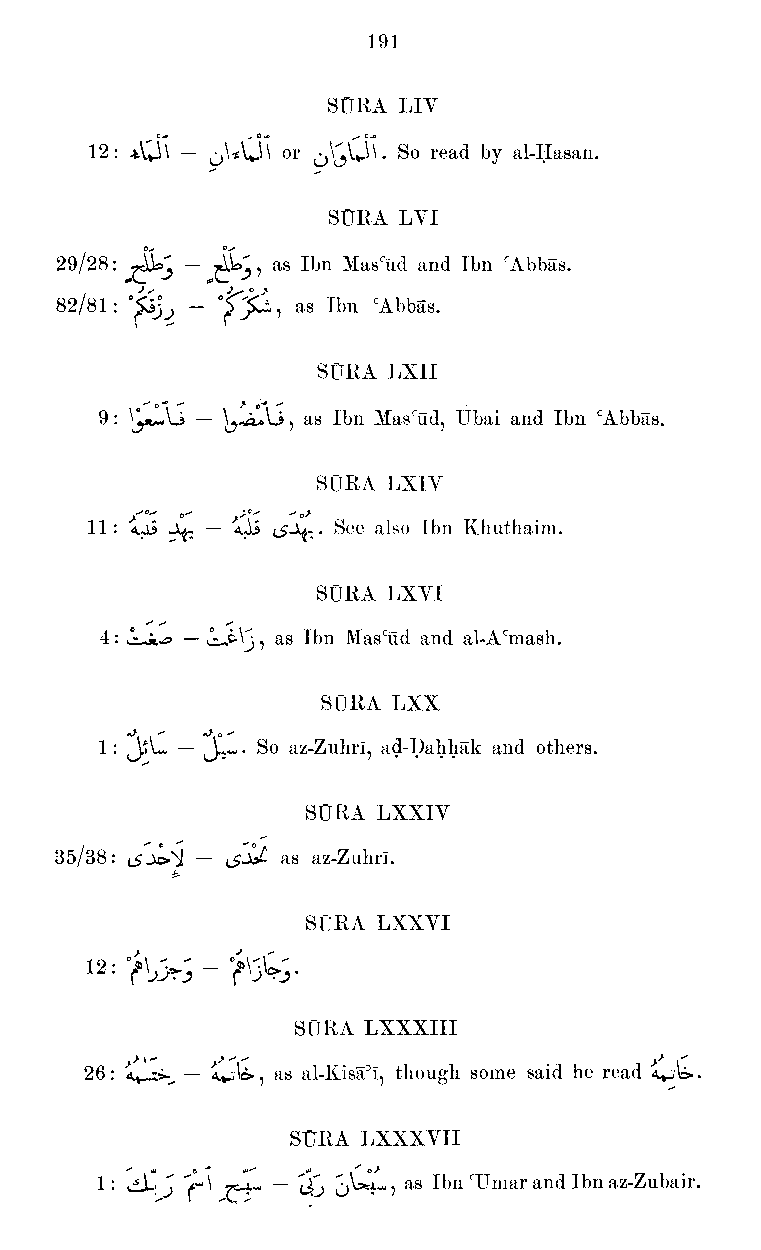 191
SŪRA LIV
12: ٱلْمَاء — ٱلْمَاءَانِ or ٱلْمَاوَانِ. So read by al-Ḥasan.
SŪRA LVI
29/28: وَطَلْحٍ — وَطَلْعٍ, as Ibn Masʿūd and Ibn ʿAbbās.
82/81: رِزْقَكُمْ — شُكْرَكُمْ, as Ibn ʿAbbās.
SŪRA LXII
9: فَٱسْعَوْا — فَٱمْضُوا, as Ibn Masʿūd, Ubai and Ibn ʿAbbās.
SŪRA LXIV
11: يَهْدِ قَلْبَهُ — يُهْدَى قَلْبُهُ. See also Ibn Khuthaim.
SŪRA LXVI
4: صَغَتْ — زَاغَتْ, as Ibn Masʿūd and al-Aʿmash.
SŪRA LXX
1: سَائِلٌ — سَيْلٌ. So az-Zuhrī, aḍ-Ḍaḥḥāk and others.
SŪRA LXXIV
35/38: لَإِحْدَى — لَحْدَى as az-Zuhrī.
SŪRA LXXVI
12: وَجَزَراهُمْ — وَجَازَاهُمْ.
SŪRA LXXXIII
26: خِتَٰمُهُ — خَاتَمُهُ, as al-Kisāʾī, though some said he read خَاتِمُهُ.
SŪRA LXXXVII
1: سَبِّحِ ٱسْمَ رَبِّكَ — سُبْحَانَ رَبِّيَ, as Ibn ʿUmar and Ibn az-Zubair.